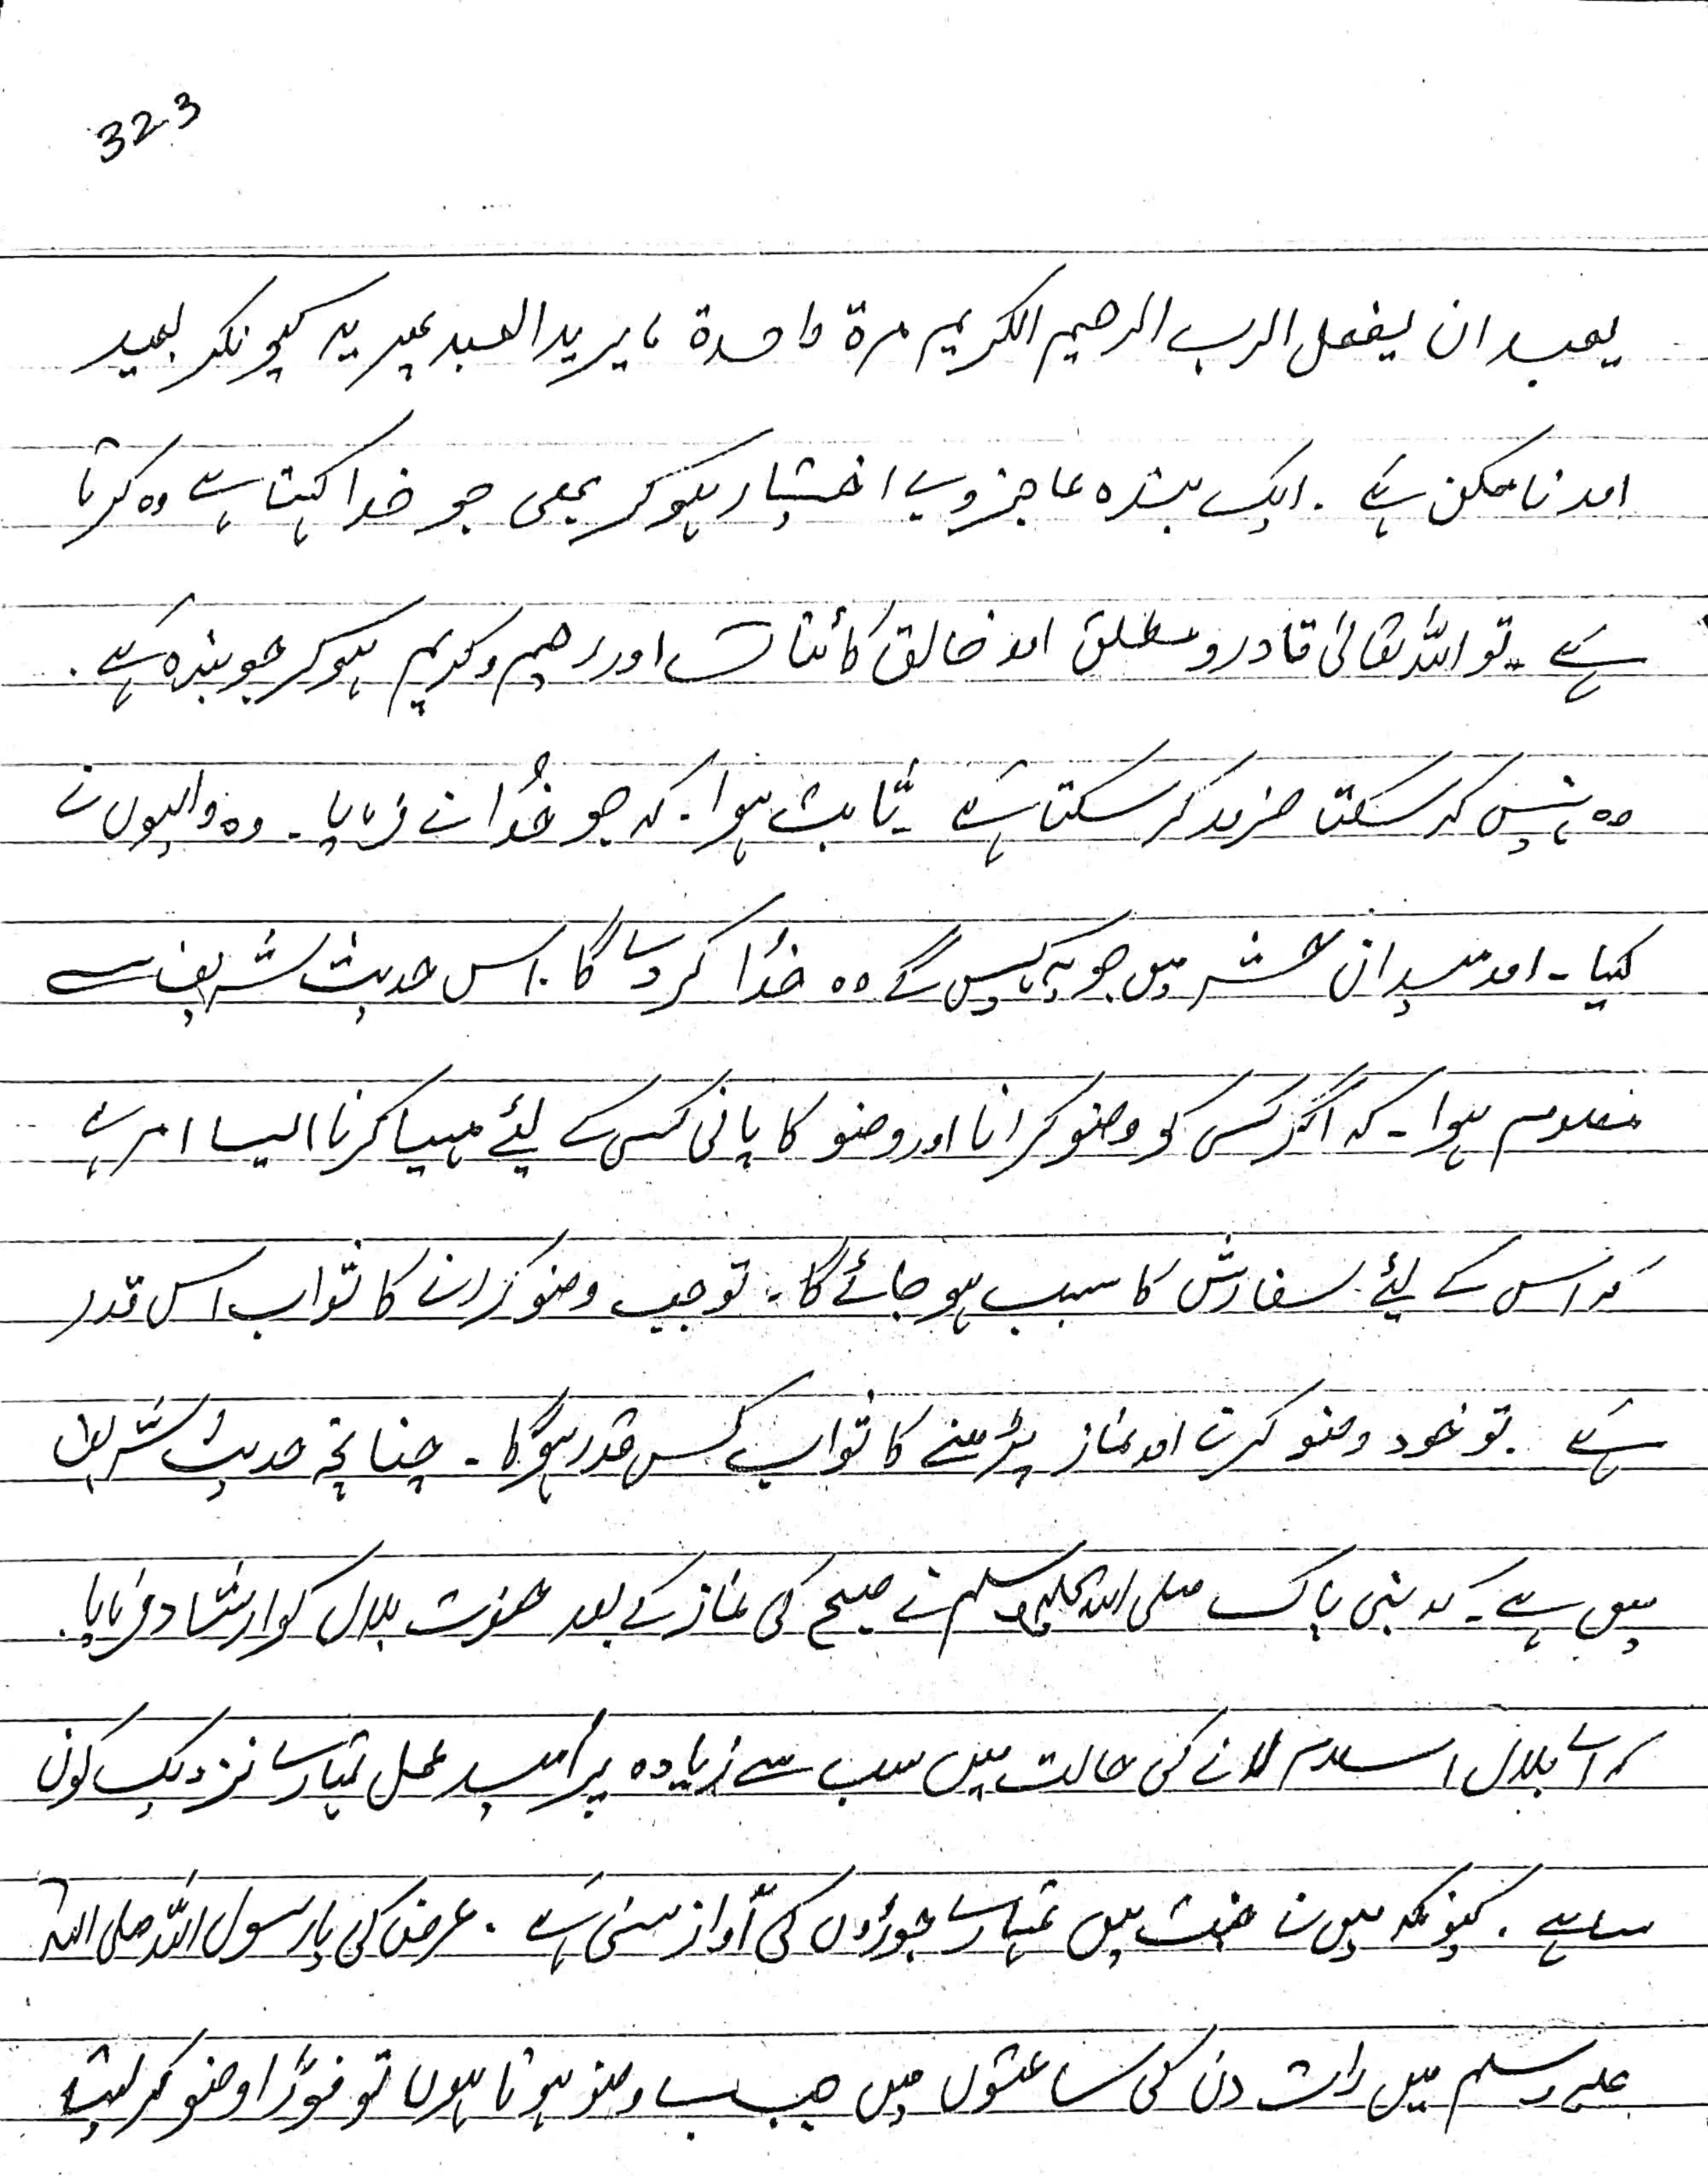 323
یعبد ان یفعل الرب الرحیم الکریم مرۃ واحدۃ ما یرید العبد پھر یہ کیونکر بعید
اور ناممکن ہے ۔ ایک بندہ عاجز و بے اختیار ہوکر بھی جو خدا کہتا ہے وہ کرتا
ہے ۔ تو اللہ تعالیٰ قادر و مطلق اور خالق کائنات اور رحیم و کریم ہوکر جو بندہ ہے ۔
وہ نہیں کر سکتا ضرور کر سکتا ہے ۔ ثابت ہوا ۔ کہ جو خدُا نے فرمایا ۔ وہ ولیوں نے
کیا ۔ اور میدان حشر میں جو یہ کہیں گے وہ خدا کر دے گا ۔ اس حدیث شریف سے
معلوم ہوا ۔ کہ اگر کسی کو وضو کرانا اور وضو کا پانی کسی کے لیئے مہیا کرنا ایسا امر ہے
کہ اس کے لیئے سفارش کا سبب ہو جائے گا ۔ تو جب وضو کرانے کا ثواب اس قدر
ہے ۔ تو خود وضو کرنے اور نماز پڑھنے کا ثواب کس قدر ہوگا ۔ چنانچہ حدیث شریف
میں ہے ۔ کہ نبی پاک صلی اللہ علیہ وسلم نے صبح کی نماز کے بعد حضرت بلال کو ارشاد فرمایا ۔
کہ اے بلال اسلام لانے کی حالت میں سب سے زیادہ پرُ امید عمل تمہارے نزدیک کون
سا ہے ۔ کیونکہ میں نے جنت میں تمہارے جوڑوں کی آواز سنی ہے ۔ عرض کی یا رسول اللہ صلی اللہ
علیہ وسلم میں رات دن کی ساعتوں میں جب بے وضو ہوتا ہوں تو فوراً وضو کر لیتا